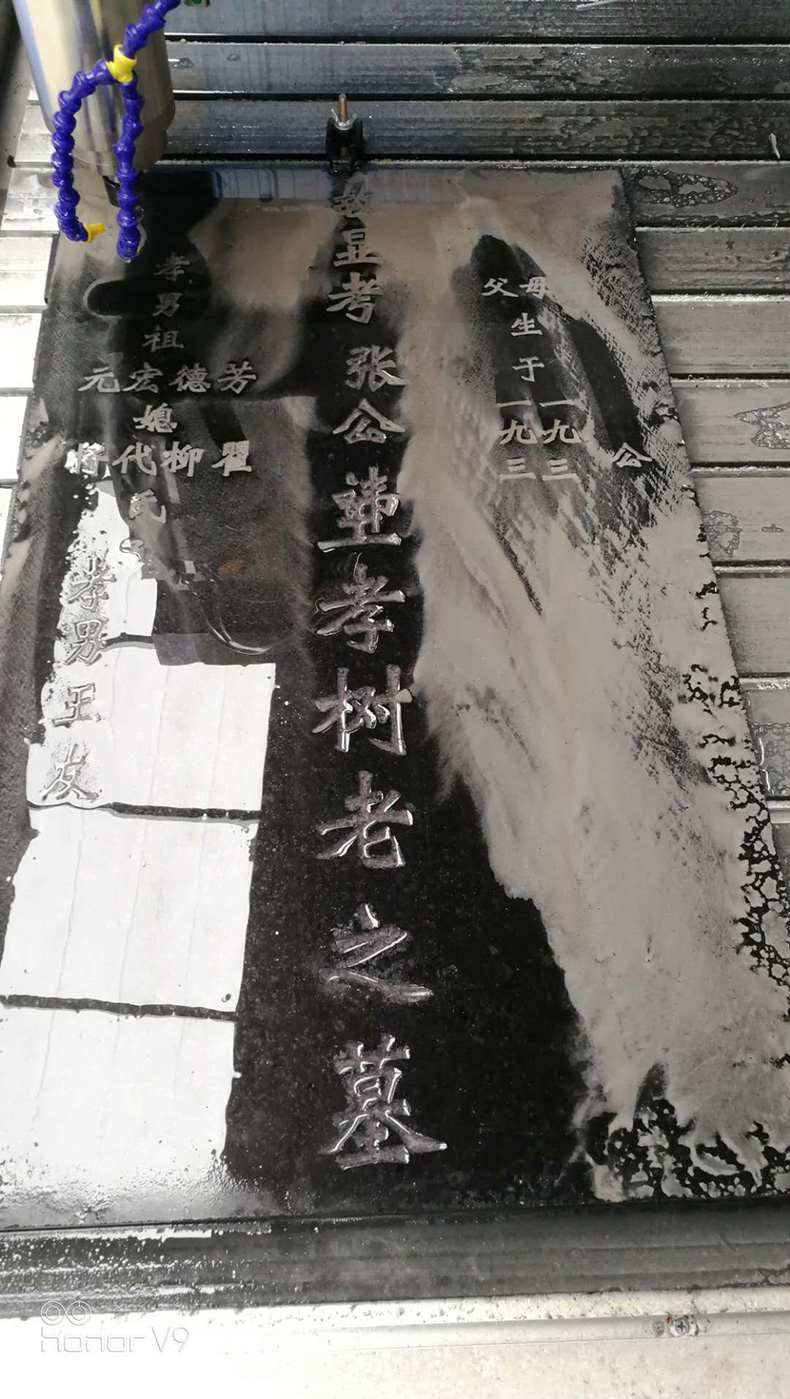 公
母生于一九三
父生于一九三
故显考张公孝树老之墓
孝男祖
元宏德芳
媳
代柳瞿
氏
孝男王友
honor V9